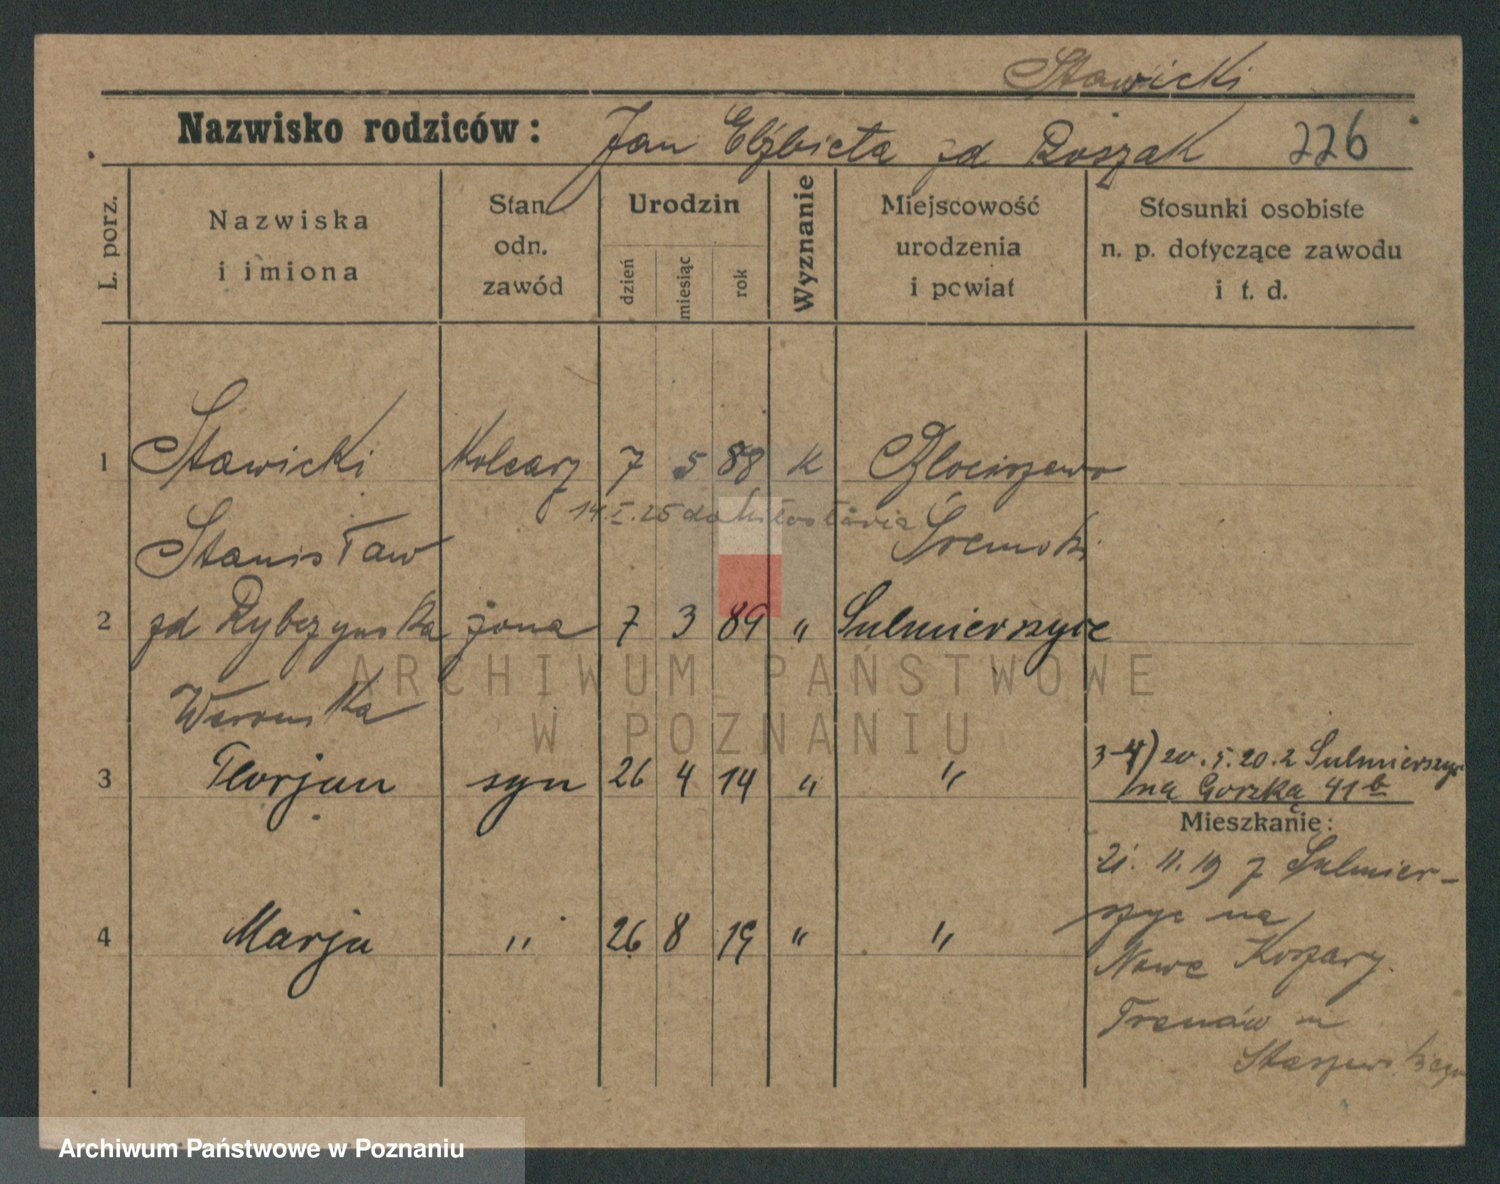 Stawicki
Nazwisko rodziców: Jan Elżbieta zd Roszak 226
L. porz.
Nazwiska i imiona
Stan odn. zawód
Urodzin
dzień
miesiąc
rok
Wyznanie
Miejscowość urodzenia i powiat
Stosunki osobiste n. p. dotyczące zawodu i t. d.
1 Stawicki 7 5 88 K
14.I.25 do Miłosławia
Stanisław Śremski
2 zd żona 7 3 89 " Sulmierzyce
3 Florjan syn 26 4 14 " "
3-4) 20.5.20. z
na Gorzką 41b
Mieszkanie:
21. 11. 19 z Sulmier-
szyc na
4 Marja " 26 8 19 " "
Nowe Koszary.
ARCHIWUM PAŃSTWOWE
W POZNANIU
Archiwum Państwowe w Poznaniu